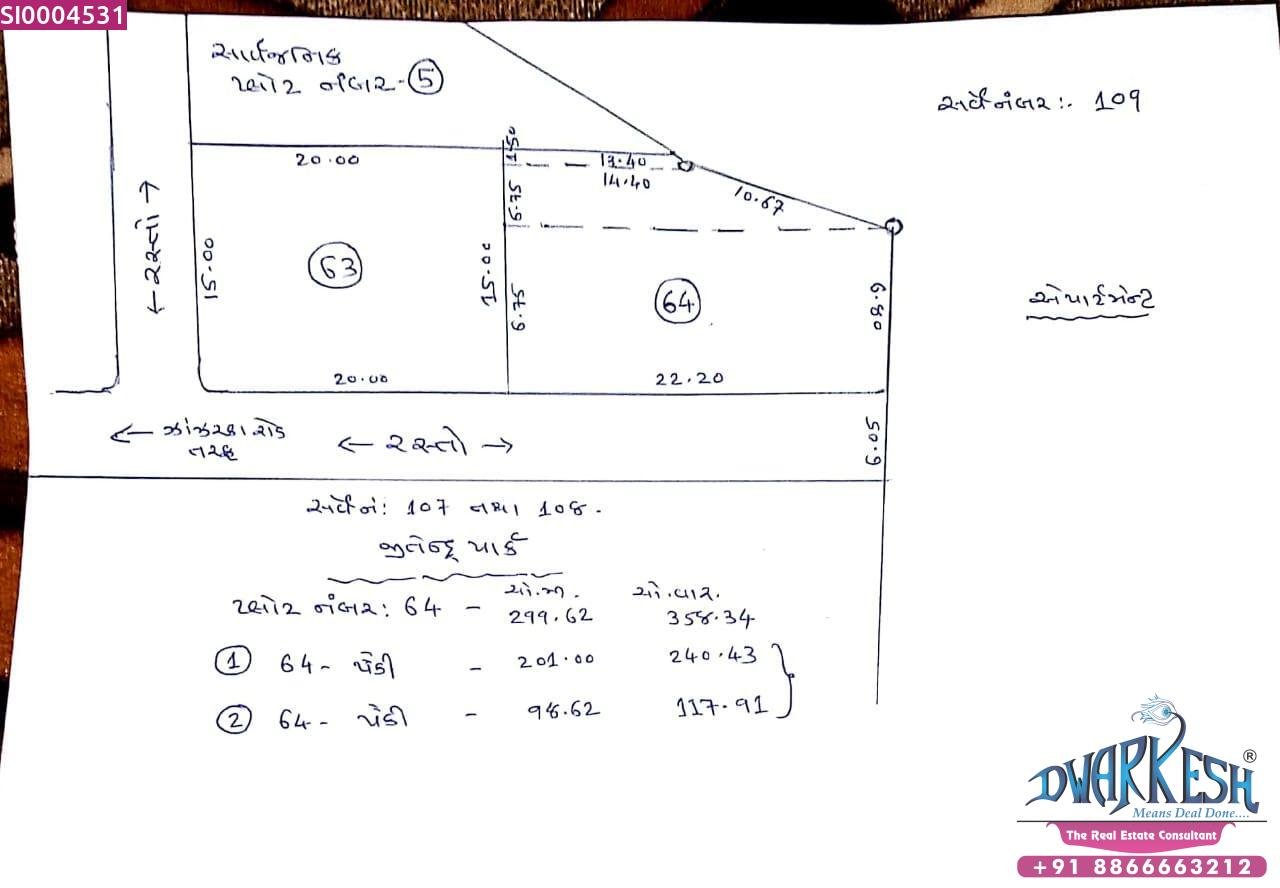 SI0004531
સાર્વજનિક
પ્લોટ નંબર-5
સર્વે નંબર:- 109
20.00
1.50
13.40
14.40
10.67
6.75
← રસ્તો →
15.00
63
15.00
6.75
64
6.80
એપાર્ટમેન્ટ
20.00
22.20
← ઝાંઝરકા રોડ
તરફ
← રસ્તો →
6.05
સર્વે નં: 107 તથા 108.
જીતેન્દ્ર પાર્ક
સો.મી. સો.વાર.
પ્લોટ નંબર: 64 - 299.62 358.34
1 64 - પૈકી - 201.00 240.43
2 64 - પૈકી - 98.62 117.91
DWARKESH®
Means Deal Done....
The Real Estate Consultant
+91 8866663212